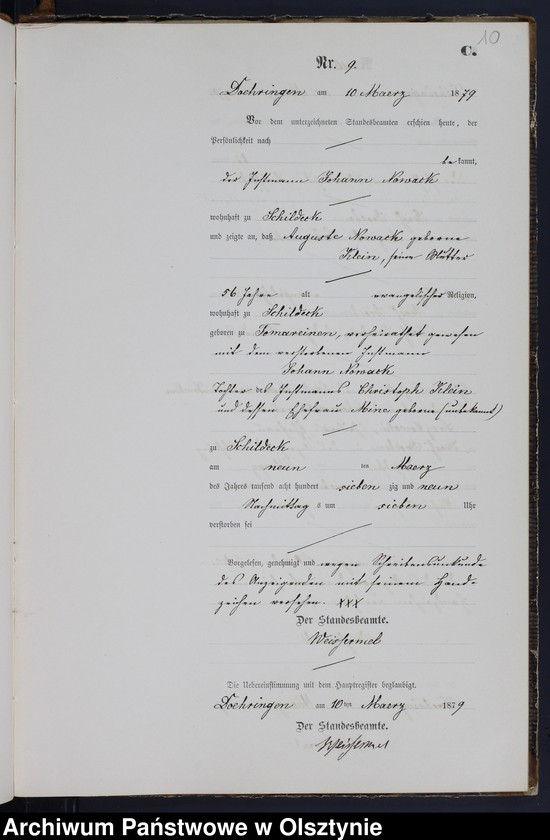 10
C.
Nr. 9.
Doehringen am 10 Maerz 1879
Vor dem unterzeichneten Standesbeamten erschien heute, der
Persönlichkeit nach
bekannt,
der Instmann Johann Nowack
wohnhaft zu Schildeck
und zeigte an, daß Auguste Nowack geborne
Klein, seine Mutter
56 Jahre alt evangelischer Religion,
wohnhaft zu Schildeck
geboren zu Tomareinen, verheirathet gewesen
mit dem verstorbenen Instmann
Johann Nowack
Tochter des Instmanns Christoph Klein
und dessen Ehefrau Mine geborne (unbekannt)
zu Schildeck
am neun ten Maerz
des Jahres tausend acht hundert sieben zig und neun
Nachmittags um sieben Uhr
verstorben sei
Vorgelesen, genehmigt und wegen Schreibensunkunde
des Anzeigenden mit seinem Hand-
zeichen versehen. XXX
Der Standesbeamte.
Weissermel
Die Uebereinstimmung mit dem Hauptregister beglaubigt.
Doehringen am 10ten Maerz 1879
Der Standesbeamte.
Weissermel
Archiwum Państwowe w Olsztynie